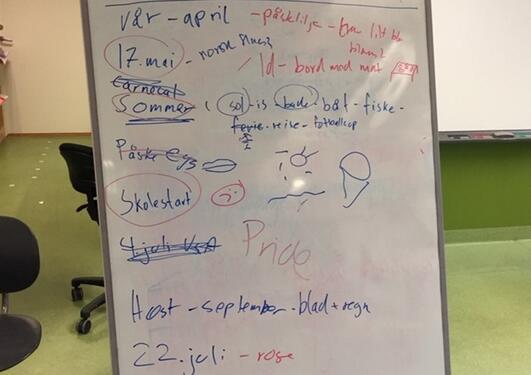 vår - april - påskelilje -
17.mai - norsk
Id - bord med mat
Carneval
Sommer, sol - is bade - båt - fiske -
ferie - reise - fotballcup
Påske egg
Skolestart
4.juli USA Pride
Høst - september - blad + regn
22.juli - rose